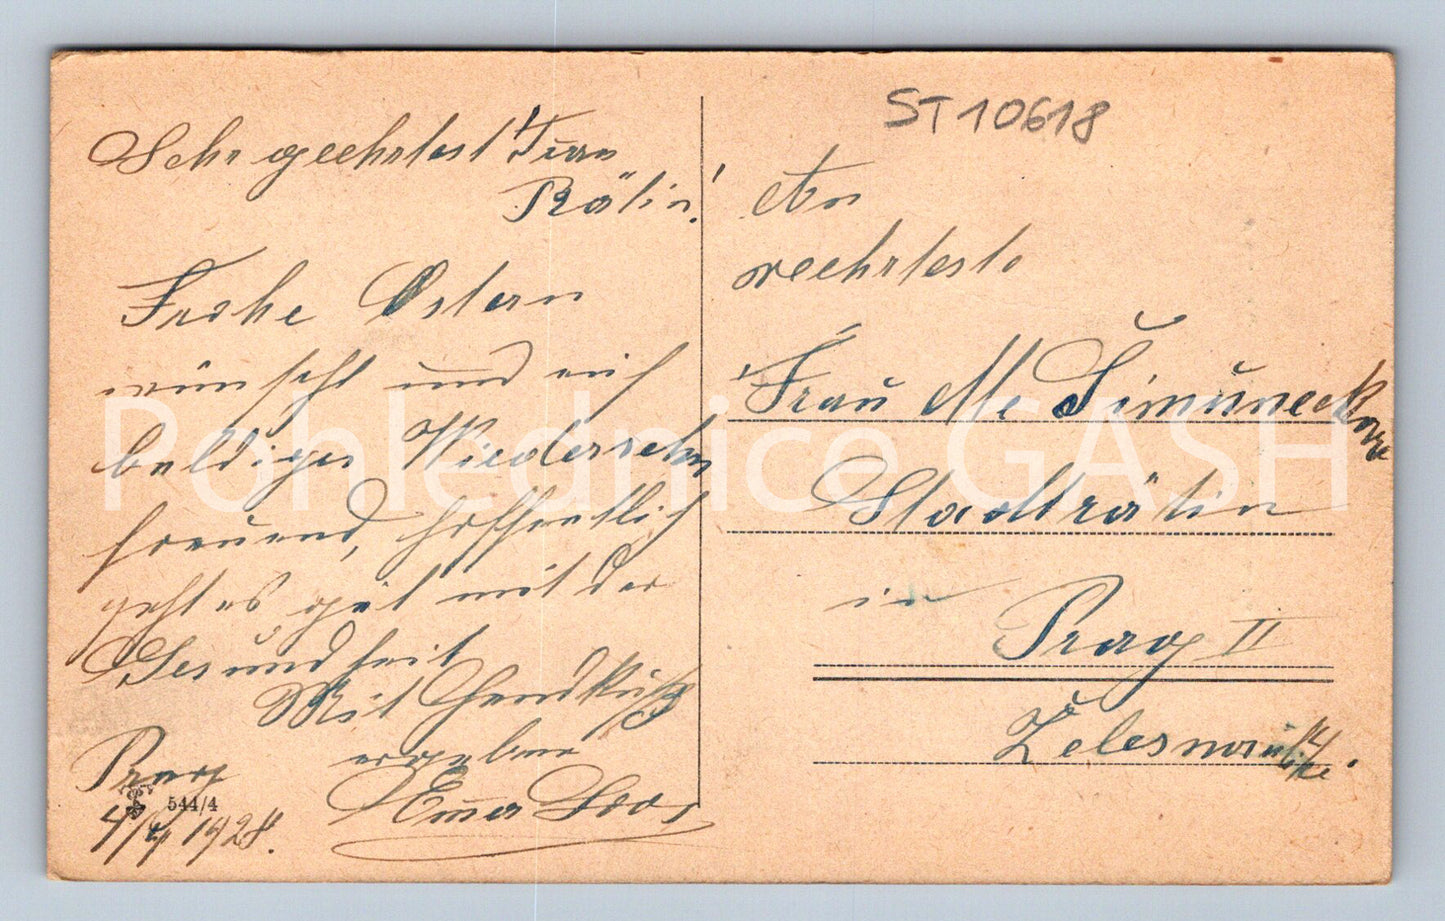 ST10618
Sehr geehrtest Frau
Rätin!
Frohe Ostern
wünscht und auf
baldiges Wiedersehn
freuend, hoffentlich
geht es gut mit der
Gesundheit
Mit Handkuß
ergeben
Emma Loos
Prag
4/4 1928.
544/4
An
veehrteste
Frau Me Šimůneckova
Stadträtin
in
Prag II
Želesna
14
Pohlednice GASH